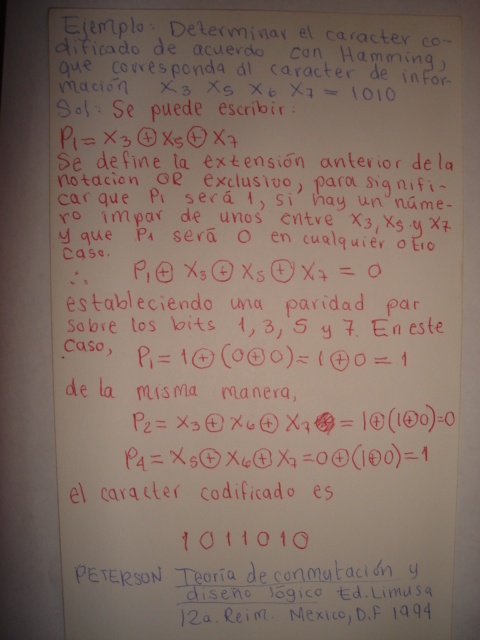 Ejemplo: Determinar el caracter co-
dificado de acuerdo con Hamming,
que corresponda al caracter de infor-
mación X3 X5 X6 X7 = 1010
Sol: Se puede escribir:
P1 = X3 ⊕ X5 ⊕ X7
Se define la extensión anterior de la
notacion OR exclusivo, para signifi-
car que P1 será 1, si hay un núme-
ro impar de unos entre X3, X5 y X7
y que P1 será 0 en cualquier otro
caso.
∴ P1 ⊕ X3 ⊕ X5 ⊕ X7 = 0
estableciendo una paridad par
sobre los bits 1, 3, 5 y 7. En este
caso, P1 = 1 ⊕ (0 ⊕ 0) = 1 ⊕ 0 = 1
de la misma manera,
P2 = X3 ⊕ X6 ⊕ X7 = 1 ⊕ (1 ⊕ 0) = 0
P4 = X5 ⊕ X6 ⊕ X7 = 0 ⊕ (1 ⊕ 0) = 1
el caracter codificado es
1011010
PETERSON Teoría de conmutación y
diseño lógico Ed. Limusa
12a. Reim. México, D.F 1994